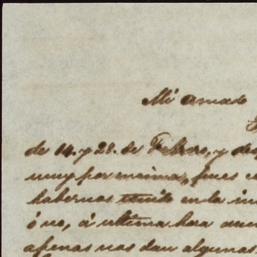 Mi amado
de 14. y 28. de Febrero, y des
muy por encima, pues
habernos tenido en la in
ó no, á ultima hora
apenas nos dan algunas